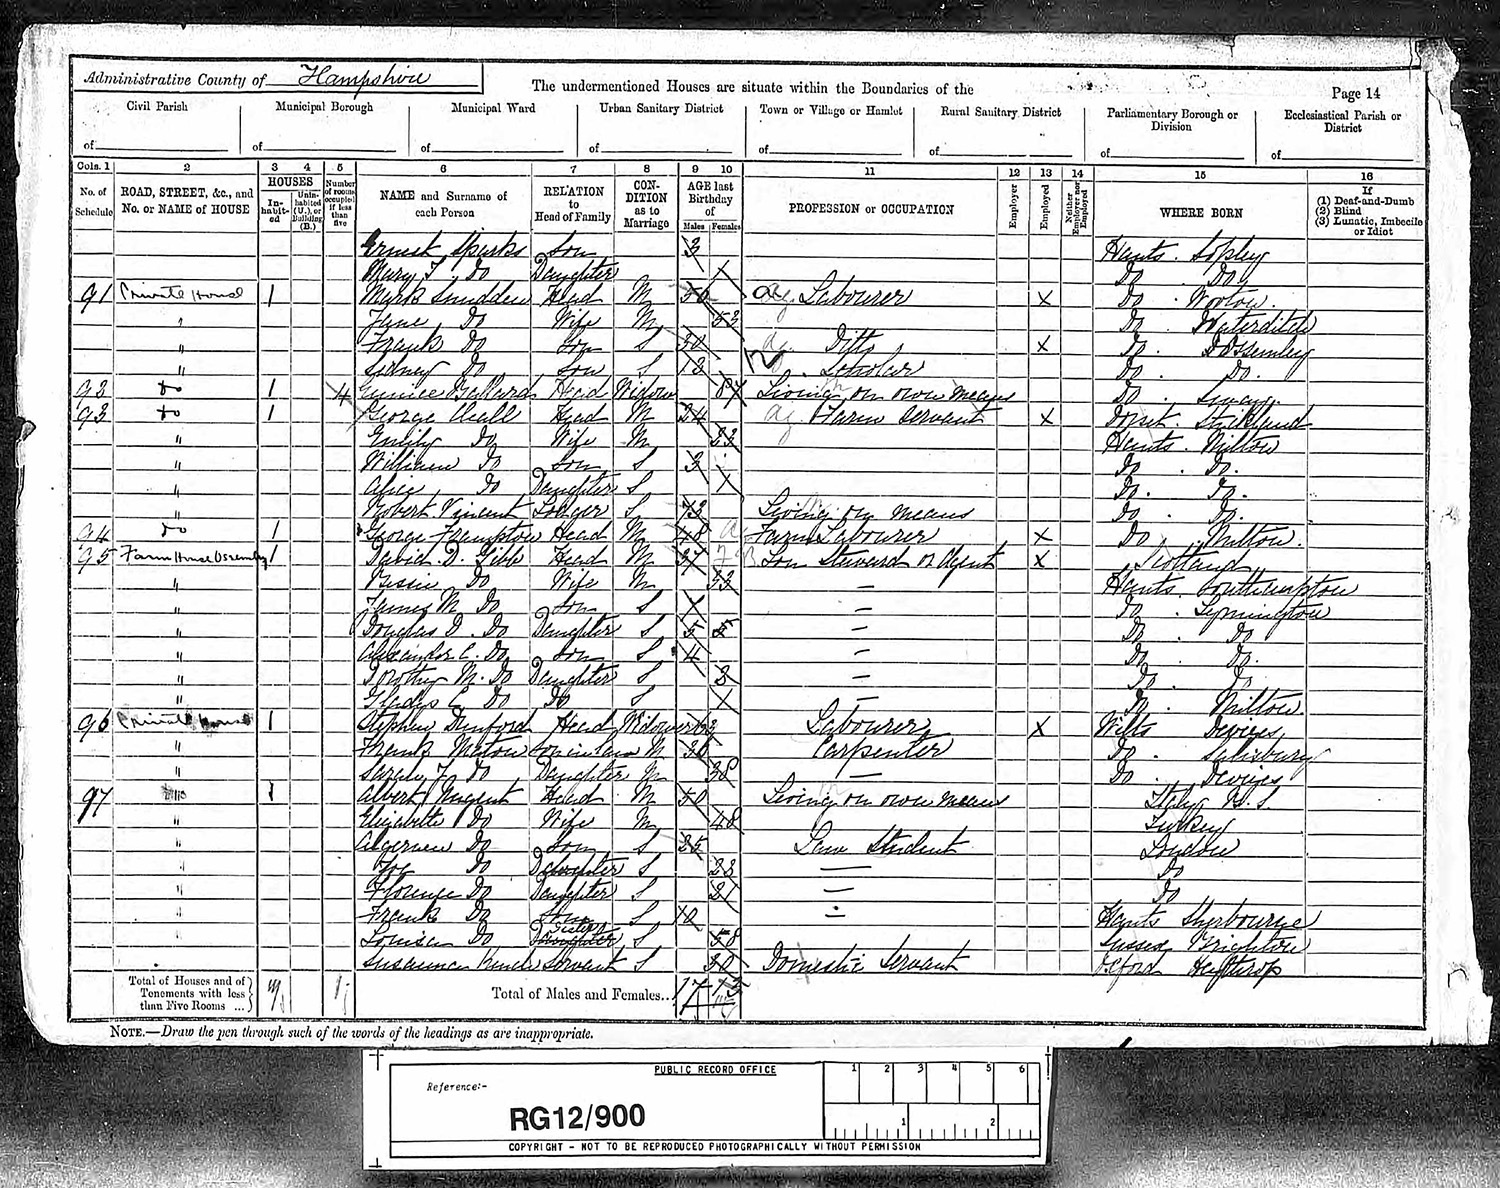 Administrative County of Hampshire
The undermentioned Houses are situate within the Boundaries of the
Page 14
Civil Parish Municipal Borough Municipal Ward Urban Sanitary District Town or Village or Hamlet Rural Sanitary District Parliamentary Borough or Division Ecclesiastical Parish or District
of of of of of of of of
Cols. 1 2 3 4 5 6 7 8 9 10 11 12 13 14 15 16
No. of Schedule ROAD, STREET, &c., and No. or NAME of HOUSE HOUSES In-habit-ed Unin-habited (U.), or Building (B.) Number of rooms occupied if less than five NAME and Surname of each Person RELATION to Head of Family CON-DITION as to Marriage AGE last Birthday of Males Females PROFESSION or OCCUPATION Employer Employed Neither Employer nor Employed WHERE BORN If (1) Deaf-and-Dumb (2) Blind (3) Lunatic, Imbecile or Idiot
Ernest Sparks Son 3 Hants. Sopley
Mary J. Do Daughter Do Do
91 Private House 1 Mark Head M 50 ag Labourer X Do Wooton
" Jane Do Wife M 53 Do Waterditch
" Frank Do Son S 20 ag. Ditto X Do
" Sidney Do Son S 12 Scholar Do. Do.
92 Do 1 4 Eunice Head Widow 87 Living on own means Do. Sway
93 Do 1 George Head M 34 ag Farm Servant X Dorset Stickland
" Emily Do Wife M 33 Hants. Milton
" William Do Son S 3 Do. Do.
" Alice Do Daughter S Do. Do.
" Robert Vincent Lodger S 73 Living on means Do. Do.
94 Do 1 George Frampton Head M 48 Farm Labourer X Do Milton
95 Farm House Ossemley 1 David D. Gibb Head M 37 Steward or Agent X Scotland
" Bessie Do Wife M 33 — Hants. Southampton
" James M. Do Son S — Do. Lymington
" Douglas D. Do Daughter S 5 5 — Do. Do
" Alexander C. Do Son S 4 — Do. Do.
" Dorothy M. Do Daughter S 3 — Do. Do
" Gladys E. Do Do S — Do. Milton
96 Private House 1 Stephen Head Widower Labourer X Wilts Devizes
" Frank Maton Son in law M 30 Carpenter Do. Salisbury
" Sarah J. Do Daughter M 38 — Do. Devizes
97 1 Albert Nugent Head M 50 Living on own means Italy B. S
" Elizabeth Do Wife M 48 Turkey
" Algernon Do Son S 25 Law Student London
" Do Daughter S 23 — Do
" Florence Do Daughter S 21 — Do
" Frank Do Son S 10 — Hants Sherbourne
" Louisa Do Sister Daughter S 58 Sussex Brighton
Servant S 30 Domestic Servant Oxford Heythrop
Total of Houses and of Tenements with less than Five Rooms ... Total of Males and Females... 17
NOTE.—Draw the pen through such of the words of the headings as are inappropriate.
PUBLIC RECORD OFFICE
1 2 3 4 5 6
Reference:-
RG12/900
1 2
COPYRIGHT - NOT TO BE REPRODUCED PHOTOGRAPHICALLY WITHOUT PERMISSION